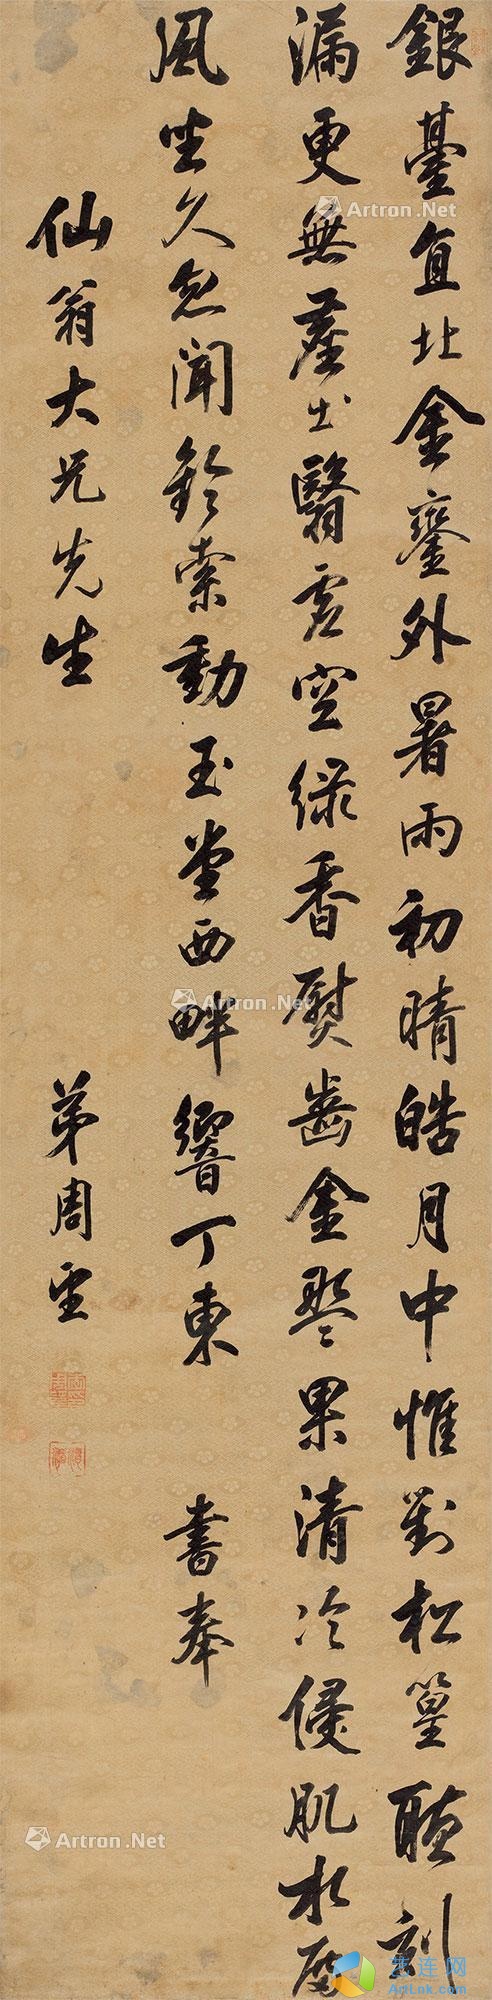 銀臺直北金鑾外暑雨初晴皓月中惟對松篁聽刻
漏更無塵土翳虛空綠香熨齒金盤果清冷侵肌水殿
風坐久忽聞鈴索動玉堂西畔響丁東 書奉
仙翁大兄先生 弟周
Artron.Net
Artron.Net
Artron.Net
Artron.Net
Artron.Net
Artron.Net
ArtLok.Com